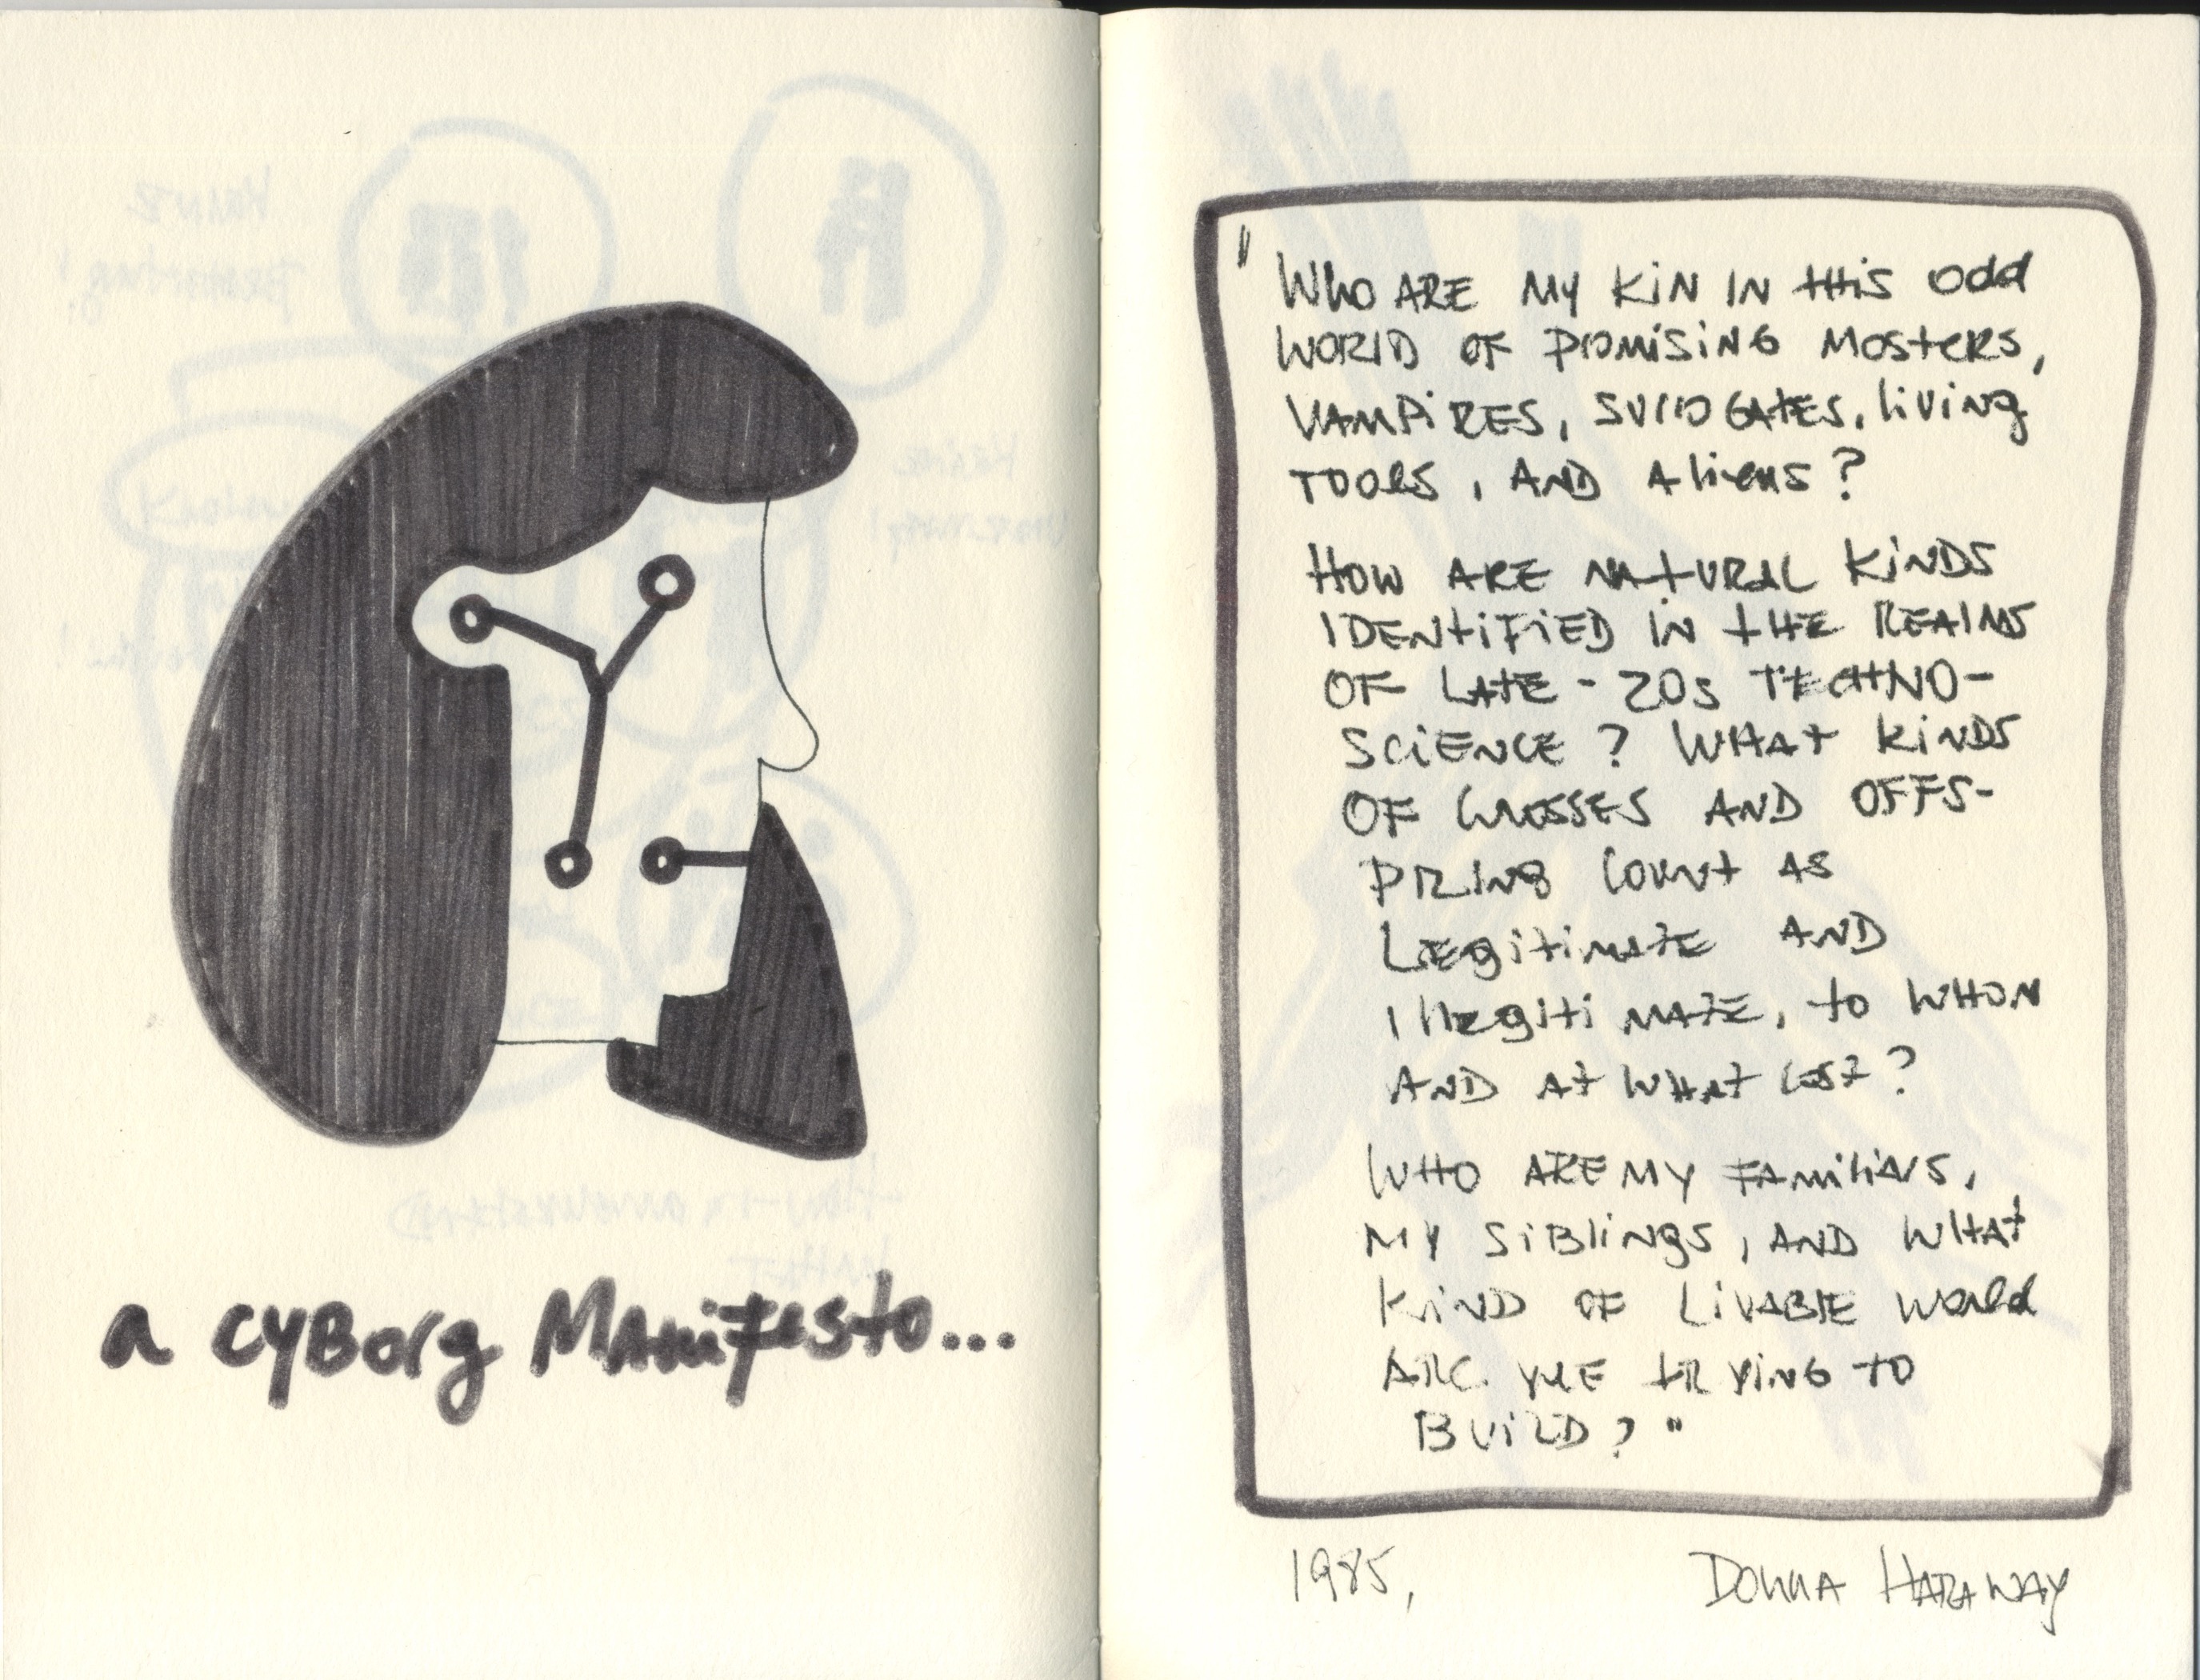 a cyborg Manifesto...
" Who are my kin in this odd
world of promising mosters,
vampires, surrogates, living
tools, and aliens?
How are natural kinds
identified in the realms
of late-20s techno-
science? What kinds
of crosses and offs-
pring count as
legitimate and
illegitimate, to whom
and at what cost?
Who are my familiars,
my siblings, and what
kind of livable world
are we trying to
build? "
1985,
Donna Haraway